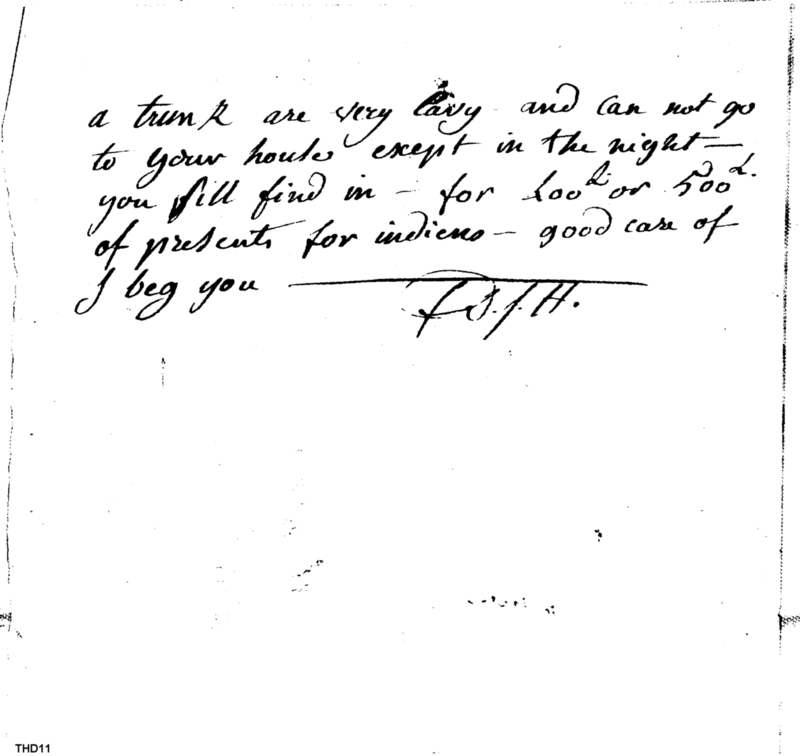 a trunk are very Eavy and can not go
to your house exept in the night —
you fill find in — for 400 L. or 500 L.
of presents for indiens — good care of
I beg you
THD11